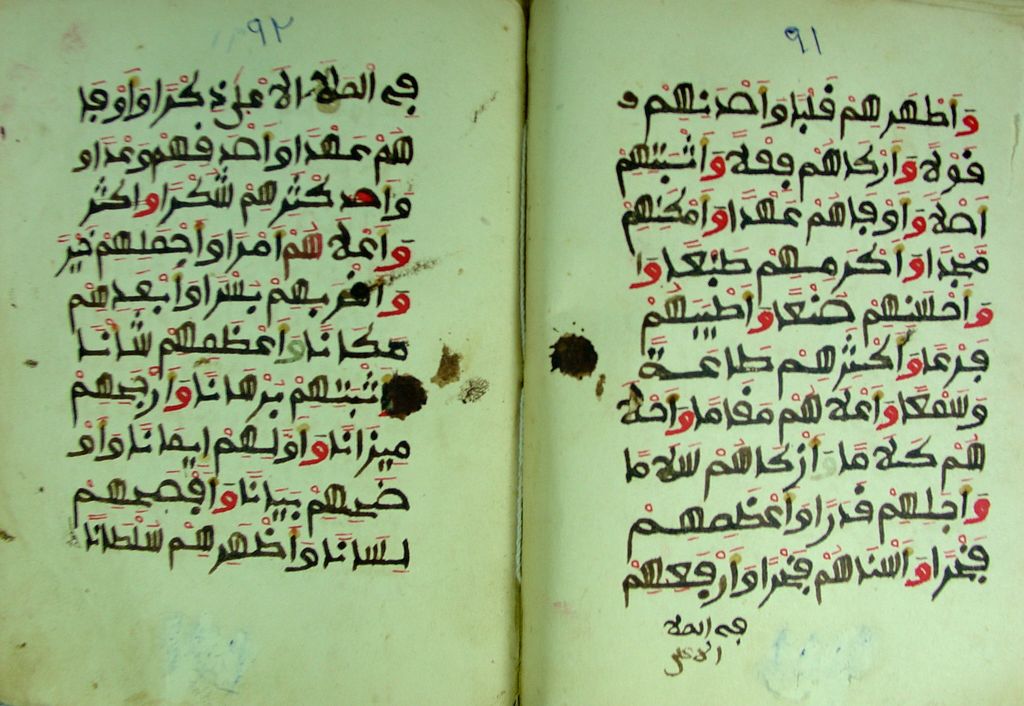 ٩١
وَأَطْهَرِهِمْ قَلْبًا وَأَصْدَقِهِمْ
قَوْلًا وَأَزْكَاهُمْ فِعْلًا وَأَثْبَتِهِمْ
أَصْلًا وَأَوْفَاهُمْ عَهْدًا وَأَمْكَنِهِمْ
مَجْدًا وَأَكْرَمِهِمْ طَبْعًا وَ
وَأَحْسَنِهِمْ صُنْعًا وَأَطْيَبِهِمْ
فَرْعًا وَأَكْثَرِهِمْ طَاعَةً
وَسَمْعًا وَأَعْلَاهُمْ مَقَامًا وَأَحْلَا
هُمْ كَلَامًا وَأَزْكَاهُمْ سَلَامًا
وَأَجَلِّهِمْ قَدْرًا وَأَعْظَمِهِمْ
فَخْرًا وَأَسْنَاهُمْ فَخْرًا وَأَرْفَعِهِمْ
في الملا
الاعلى
٩٢
فِي الْمَلَإِ الْأَعْلَى ذِكْرًا وَأَوْفَا
هُمْ عَهْدًا وَأَصْدَقِهِمْ وَعْدًا وَ
وَأَكْثَرِهِمْ شُكْرًا وَأَكْثَر
وَأَعْلَاهُمْ أَمْرًا وَأَجْمَلِهِمْ خَيْرً
وَأَقْرَبِهِمْ يُسْرًا وَأَبْعَدِهِمْ
مَكَانًا وَأَعْظَمِهِمْ شَانًا
وَأَثْبَتِهِمْ بُرْهَانًا وَأَرْجَحِهِمْ
مِيزَانًا وَأَوَّلِهِمْ إِيمَانًا وَأَوْ
ضَحِهِمْ بَيَانًا وَأَفْصَحِهِمْ
لِسَانًا وَأَظْهَرِهِمْ سُلْطَانًا